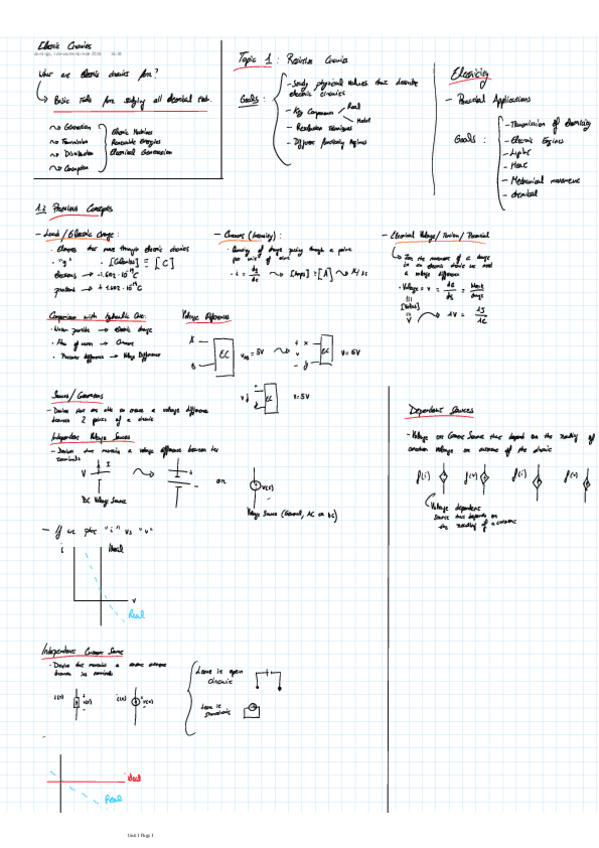 Electric Circuits
What are electric circuits for?
Basic tools for studying all electrical tech.
Generation
Transmission
Distribution
Consumption
Electric Machines
Renewable Energies
Electrical Generation
Topic 1: Resistive Circuits
Goals:
- Study physical values that describe
electric circuits
- Key Components
Real
Model
- Resolution Techniques
- Different functioning regimes
Electricity
- Powerful Applications
Goals:
- Transmission of electricity
- Electric Engines
- Lights
- Heat
- Mechanical movement
- chemical
1.2 Previous Concepts
- Load/Electric charge:
· Elements that move through electric circuits
· "q" · [Coulombs] = [C]
electrons → -1.602·10⁻¹⁹ C
protons → +1.602·10⁻¹⁹ C
- Current (Intensity):
· Quantity of charge passing through a point
per unit of time
· i = dq/dt → [Amps] = [A]
- Electrical Voltage/Tension/Potential
For the movement of a charge
in an electric circuit we need
a voltage difference
· Voltage = v = = Work/charge
[Volts]
V
1V = 1J/1C
Comparison with hydraulic circ.
· Water particle → Electric charge
· Flow of water → Current
· Pressure difference → Voltage Difference
Voltage Difference
A
B
EC
V_AB = 5V
+ x
- y
EC
V = 5V
EC
V = 5V
Sources/Generators
- Devices that are able to create a voltage difference
between 2 points of a circuit
Independent Voltage Sources
- Devices that maintain a voltage difference between its
terminals
V
I
+
-
DC Voltage Source
or
v(t)
Voltage Source (General, AC or DC)
- If we plot "i" vs "v"
i
Ideal
v
Real
Independent Current Source
- Device that maintains a current
between its terminals
i(t)
v(t)
i(t)
v(t)
Leave in open
circuit
Leave in
Ideal
Real
Dependent Sources
- Voltage or Current Source that depend on the reading of
another voltage or current of the circuit
f(i)
f(v)
f(i)
f(v)
Voltage dependent
source that depends on
the reading of a current
Unit 1 Page 1